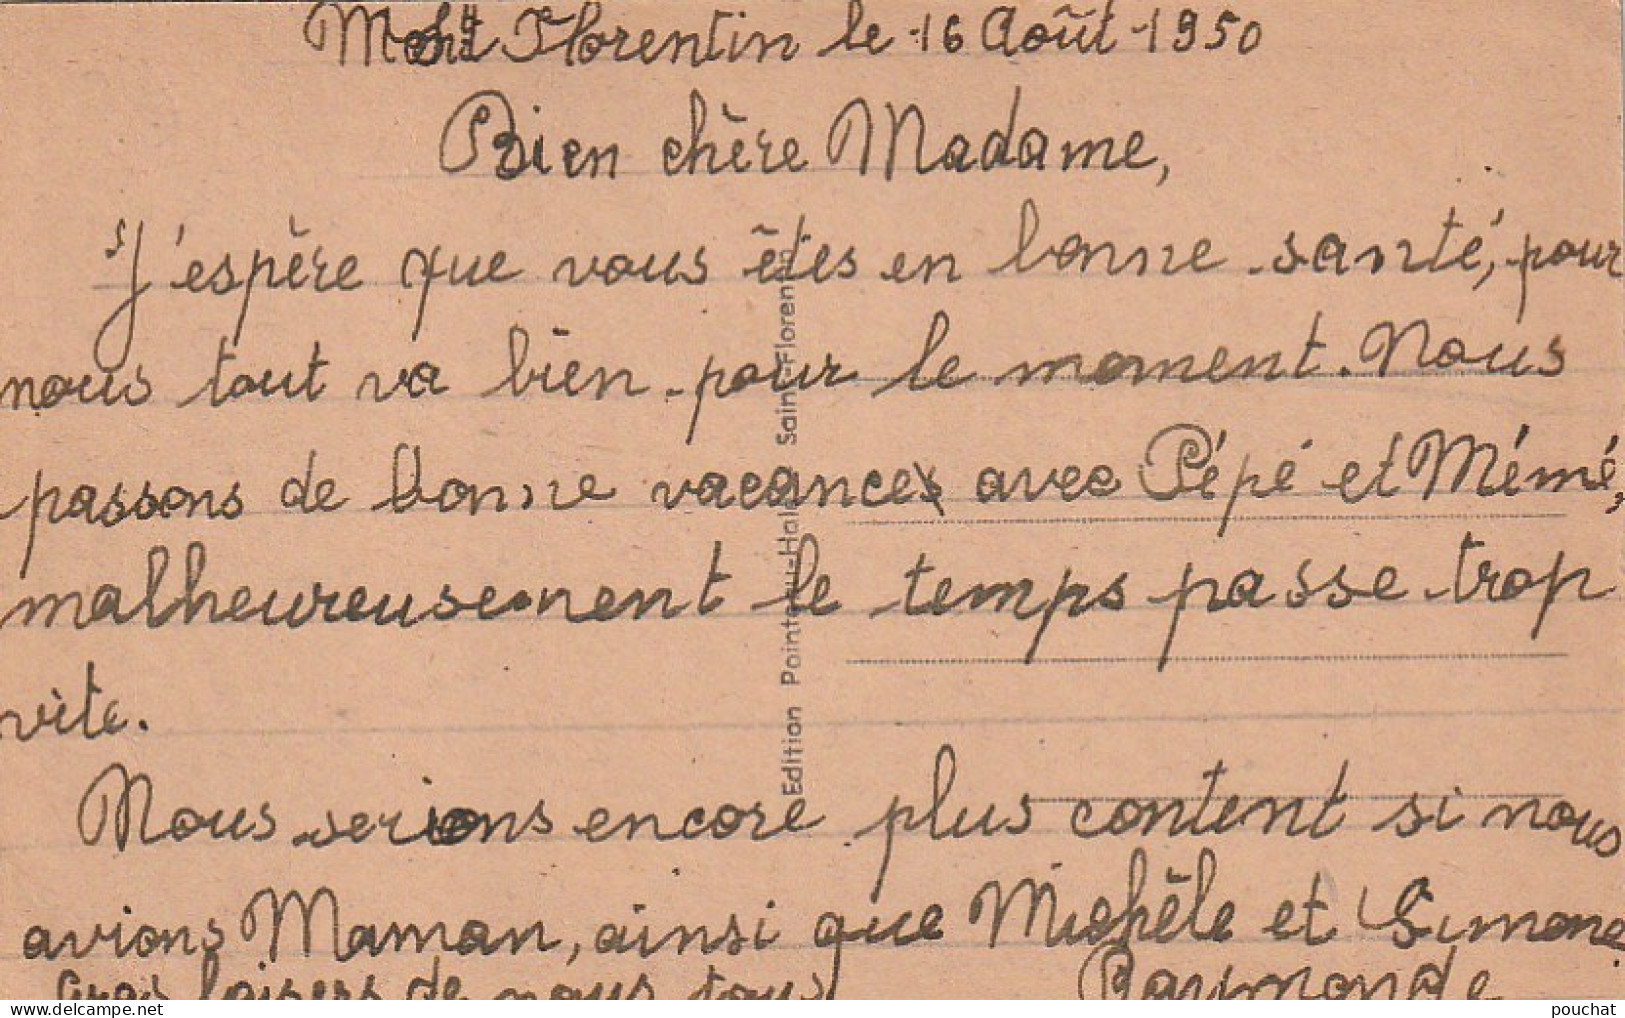 St Florentin le 16 Août 1950
Bien chère Madame,
J'espère que vous êtes en bonne santé, pour
nous tout va bien pour le moment. Nous
passons de bonne vacances avec Pépé et Mémé,
malheureusement le temps passe trop
vite.
Nous serions encore plus content si nous
avions Maman, ainsi que Michèle et Simone
Gros baisers de nous tous Raymonde
Edition Pointeau-Halé Saint-Florentin
pouchat